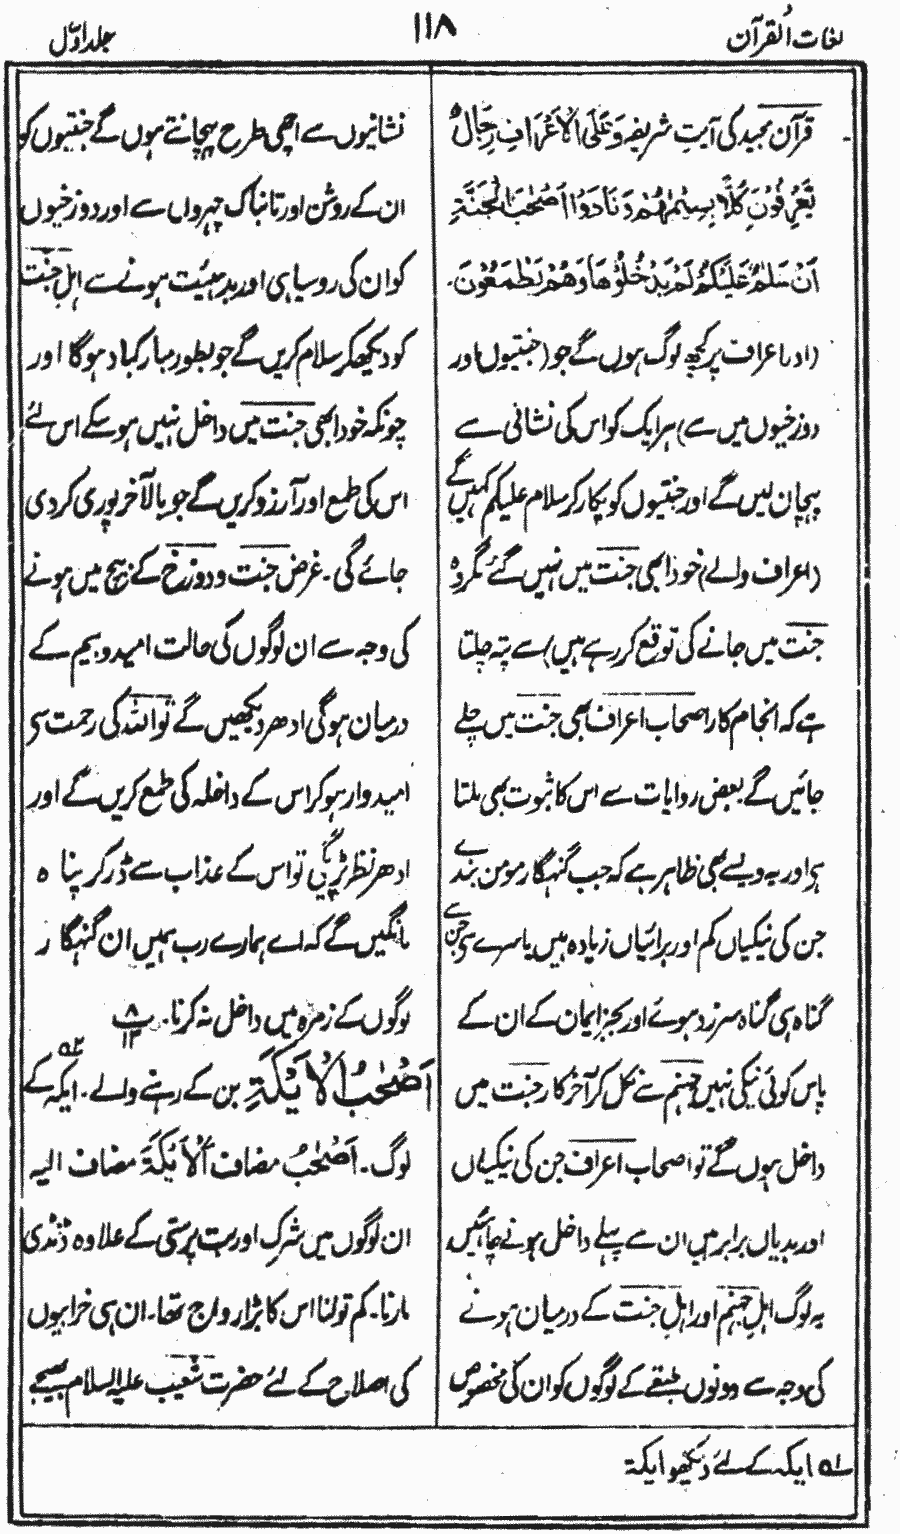 لغات القرآن
۱۱۸
جلد اوّل
قرآن مجید کی آیت شریفہ وَعَلَی الْاَعْرَافِ رِجَالٌ
یَّعْرِفُوْنَ کُلًّا بِسِیْمٰىهُمْ وَنَادَوْا اَصْحٰبَ الْجَنَّةِ
اَنْ سَلٰمٌ عَلَیْکُمْ لَمْ یَدْخُلُوْهَا وَهُمْ یَطْمَعُوْنَ۔
(اور اعراف پر کچھ لوگ ہوں گے جو (جنتیوں اور
دوزخیوں میں سے) ہر ایک کو اس کی نشانی سے
پہچان لیں گے اور جنتیوں کو پکار کر سلام علیکم کہیں گے
(اعراف والے) خود ابھی جنت میں نہیں گئے مگر وہ
جنت میں جانے کی توقع کر رہے ہیں) سے پتہ چلتا
ہے کہ انجام کار اصحاب اعراف بھی جنت میں چلے
جائیں گے بعض روایات سے اس کا ثبوت بھی ملتا
ہی اور یہ ویسے بھی ظاہر ہے کہ جب گنہگار مومن بندے
جن کی نیکیاں کم اور برائیاں زیادہ ہیں یا سرے سی جن سے
گناہ ہی گناہ سرزد ہوئے اور بجز ایمان کے ان کے
پاس کوئی نیکی نہیں جہنم سے نکل کر آخر کار جنت میں
داخل ہوں گے تو اصحاب اعراف جن کی نیکیاں
اور بدیاں برابر ہیں ان سے پہلے داخل ہونے چاہئیں
یہ لوگ اہلِ جہنم اور اہلِ جنت کے درمیان ہونے
کی وجہ سے دونوں طبقے کے لوگوں کو ان کی مخصوص
نشانیوں سے اچھی طرح پہچانتے ہوں گے جنتیوں کو
ان کے روشن اور تابناک چہروں سے اور دوزخیوں
کو ان کی روسیاہی اور بد ہیئت ہونے سے اہلِ جنت
کو دیکھ کر سلام کریں گے جو بطور مبارکباد ہوگا اور
چونکہ خود ابھی جنت میں داخل نہیں ہو سکے اس لئے
اس کی طمع اور آرزو کریں گے جو بالآخر پوری کر دی
جائے گی۔ غرض جنت و دوزخ کے بیچ میں ہونے
کی وجہ سے ان لوگوں کی حالت امید و بیم کے
درمیان ہوگی ادھر دیکھیں گے تو اللہ کی رحمت سی
امیدوار ہو کر اس کے داخلہ کی طمع کریں گے اور
ادھر نظر پڑے گی تو اس کے عذاب سے ڈر کر پناہ
مانگیں گے کہ اے ہمارے رب ہمیں ان گنہگار
لوگوں کے زمرہ میں داخل نہ کرنا۔ پ ۸ ۱۲
اَصْحٰبُ الْاَیْکَةِ بن کے رہنے والے۔ ایکہ ۵۲ کے
لوگ۔ اَصْحٰبُ مضاف اَلْاَیْکَةَ مضاف الیہ
ان لوگوں میں شرک اور بت پرستی کے علاوہ ڈنڈی
مارنا۔ کم تولنا اس کا بڑا رواج تھا۔ ان ہی خرابیوں
کی اصلاح کے لئے حضرت شعیب علیہ السلام بھیجے
۵۱ ایکہ کے لئے دیکھو ایکۃ